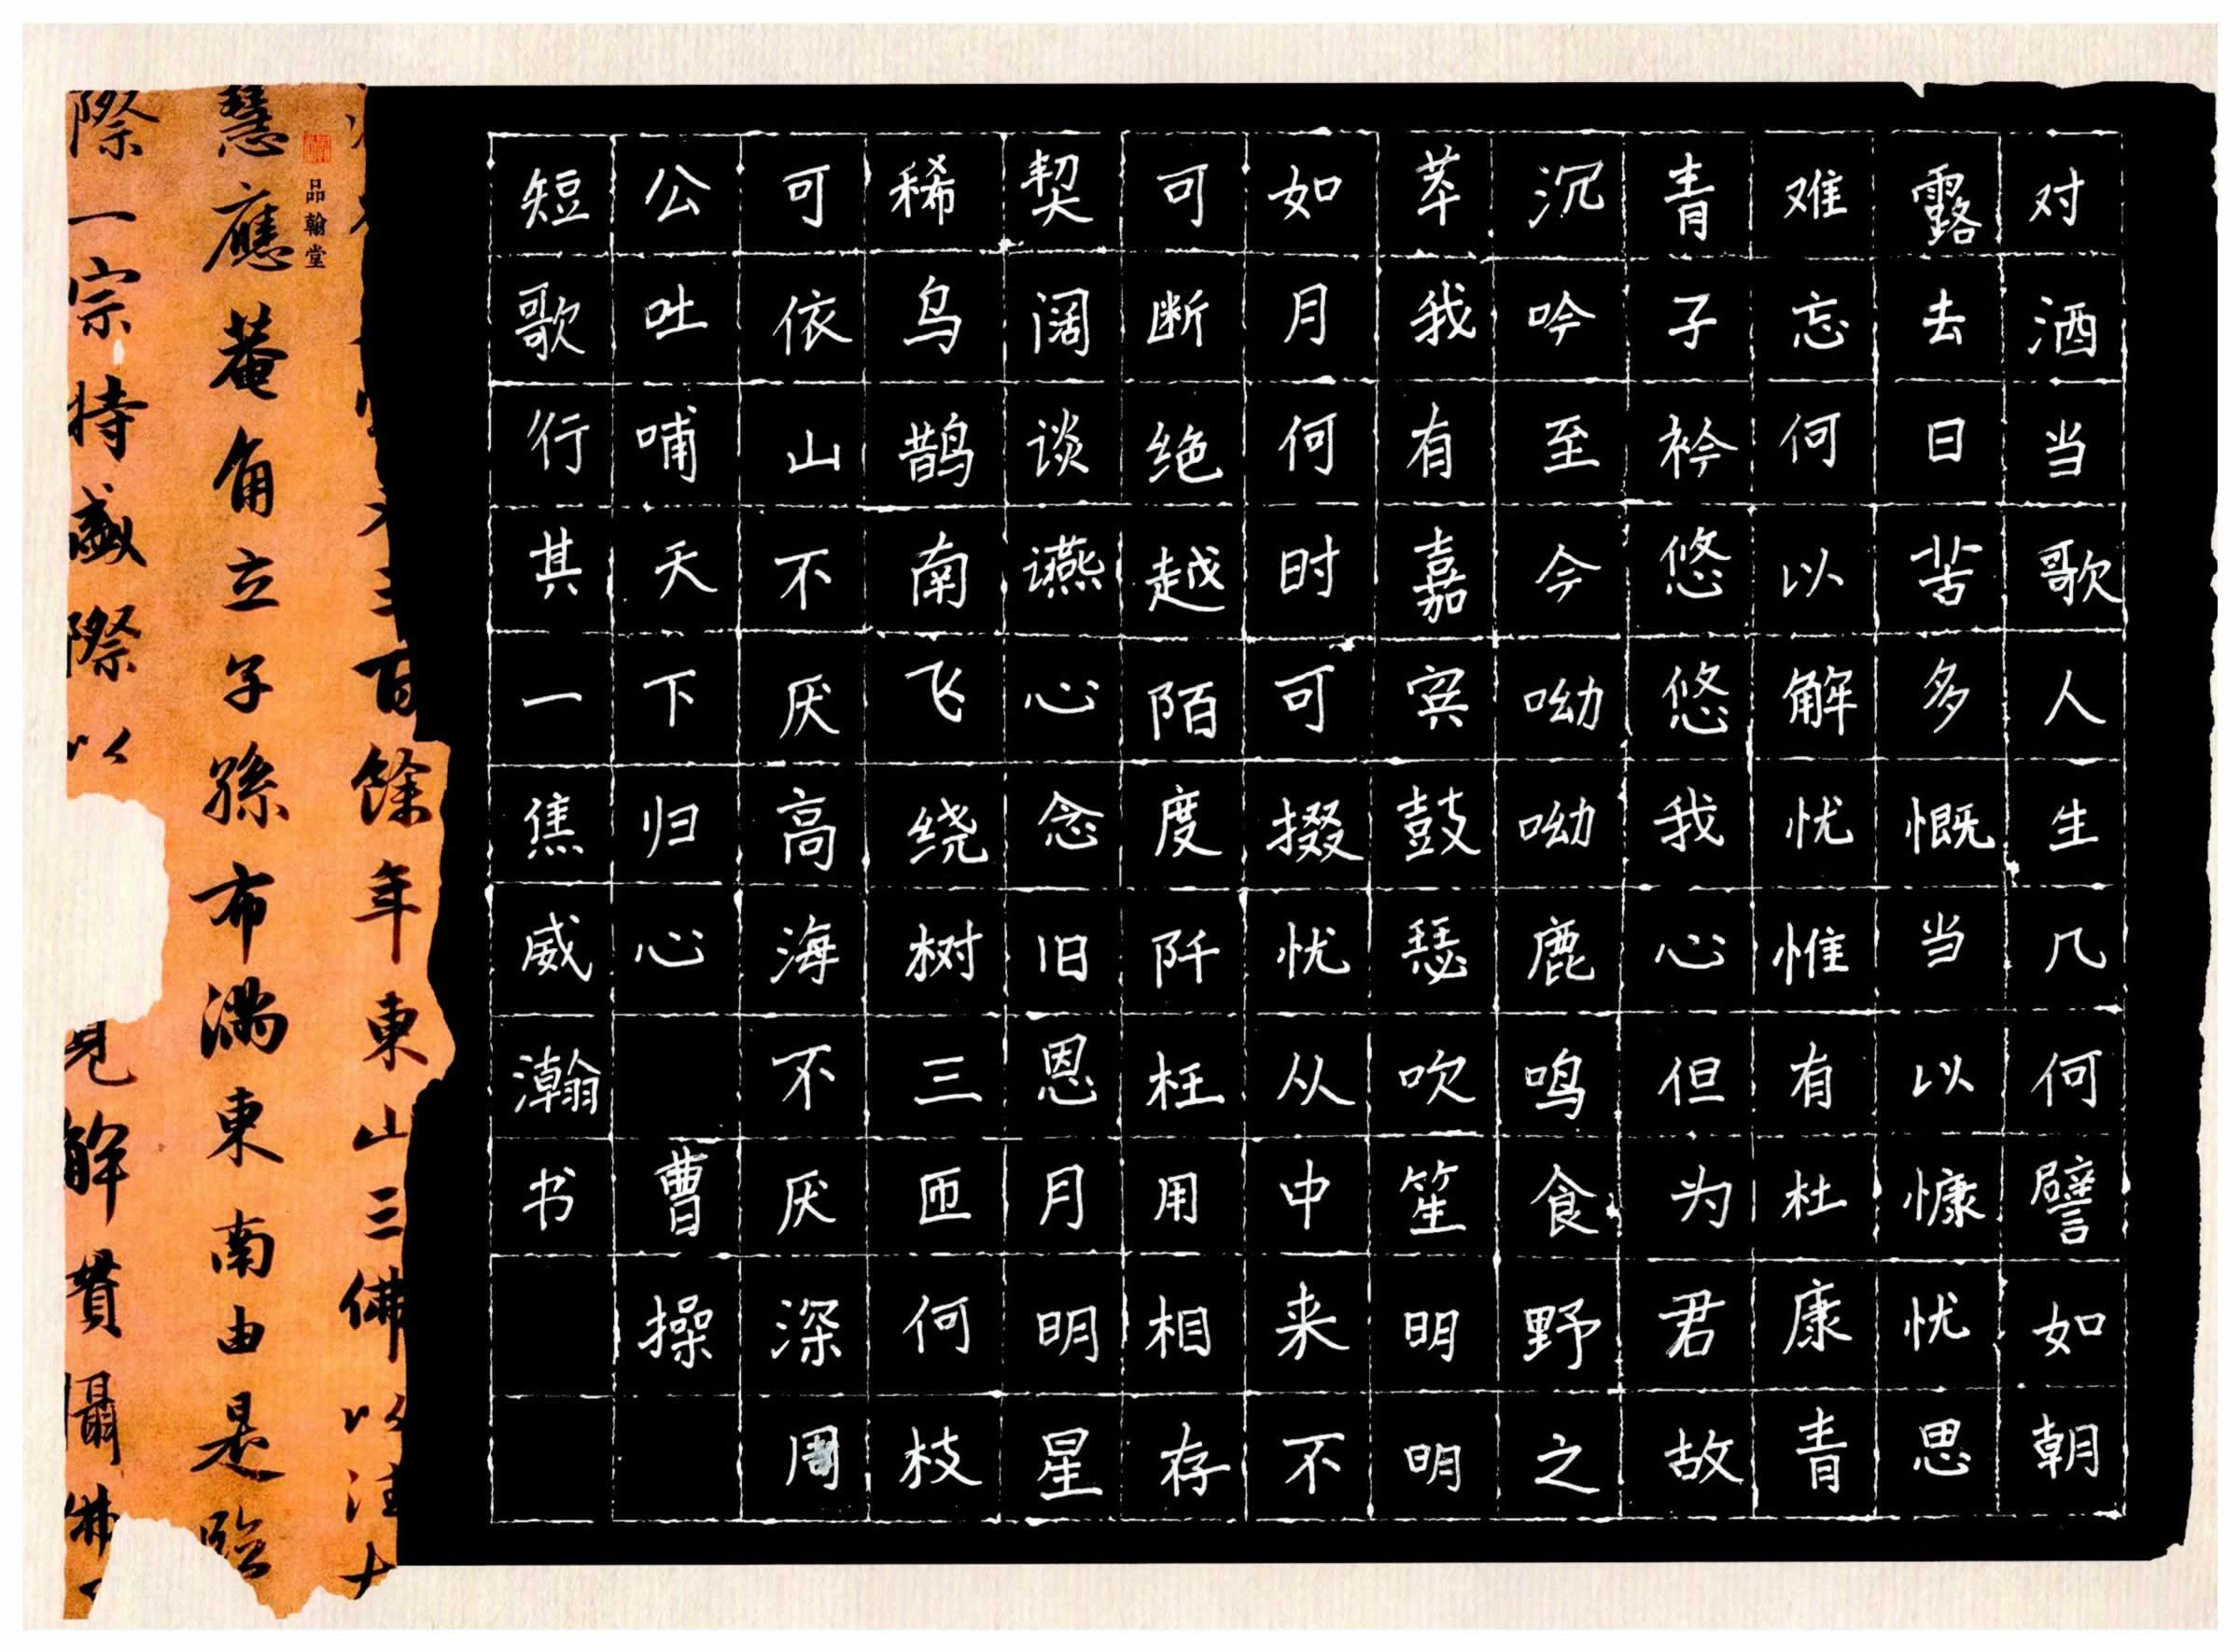 对酒当歌人生几何譬如朝
露去日苦多慨当以慷忧思
难忘何以解忧惟有杜康青
青子衿悠悠我心但为君故
沉吟至今呦呦鹿鸣食野之
苹我有嘉宾鼓瑟吹笙明明
如月何时可掇忧从中来不
可断绝越陌度阡枉用相存
契阔谈䜩心念旧恩月明星
稀乌鹊南飞绕树三匝何枝
可依山不厌高海不厌深周
公吐哺天下归心 曹操
短歌行其一焦威瀚书
百餘年東山三佛以
品翰堂
慧應菴角立子孫布滿東南由是臨
際一宗特盛際以
見解貫攝佛